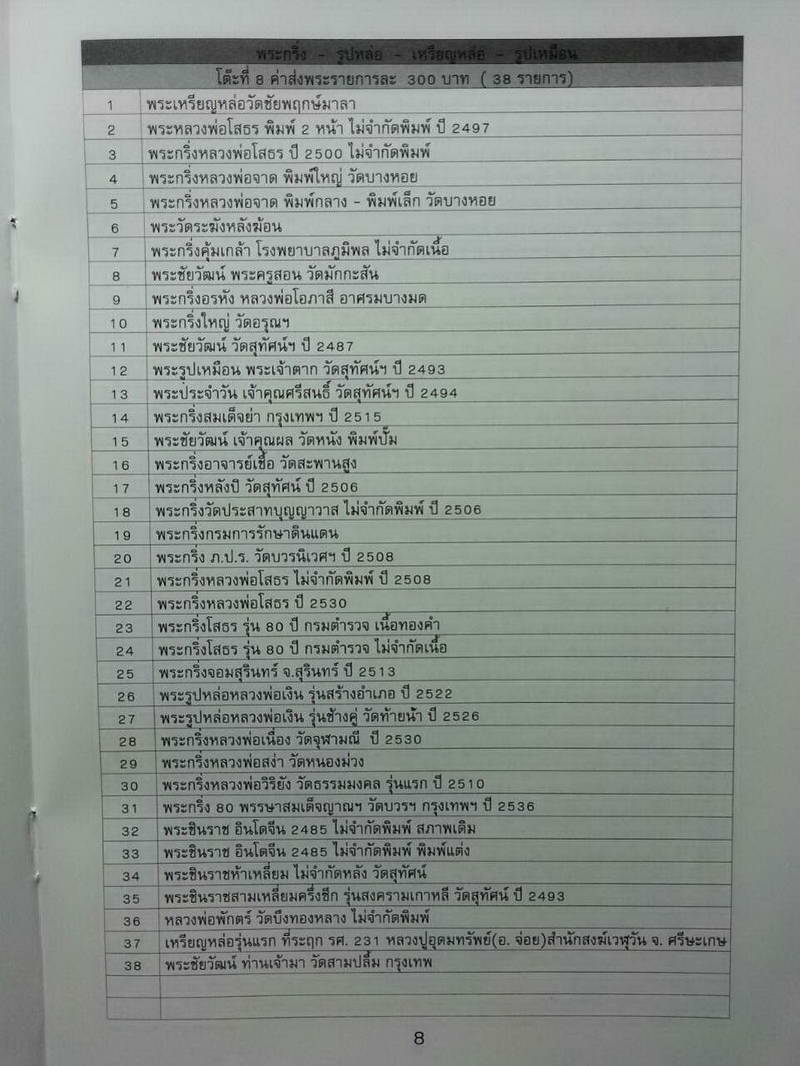 พระกริ่ง - รูปหล่อ - เหรียญหล่อ - รูปเหมือน
โต๊ะที่ 8 ค่าส่งพระรายการละ 300 บาท ( 38 รายการ)
1 พระเหรียญหล่อวัดชัยพฤกษ์มาลา
2 พระหลวงพ่อโสธร พิมพ์ 2 หน้า ไม่จำกัดพิมพ์ ปี 2497
3 พระกริ่งหลวงพ่อโสธร ปี 2500 ไม่จำกัดพิมพ์
4 พระกริ่งหลวงพ่อจาด พิมพ์ใหญ่ วัดบางหอย
5 พระกริ่งหลวงพ่อจาด พิมพ์กลาง - พิมพ์เล็ก วัดบางหอย
6 พระวัดระฆังหลังฆ้อน
7 พระกริ่งคุ้มเกล้า โรงพยาบาลภูมิพล ไม่จำกัดเนื้อ
8 พระชัยวัฒน์ พระครูสอน วัดมักกะสัน
9 พระกริ่งอรหัง หลวงพ่อโอภาสี อาศรมบางมด
10 พระกริ่งใหญ่ วัดอรุณฯ
11 พระชัยวัฒน์ วัดสุทัศน์ฯ ปี 2487
12 พระรูปเหมือน พระเจ้าตาก วัดสุทัศน์ฯ ปี 2493
13 พระประจำวัน เจ้าคุณศรีสนธิ์ วัดสุทัศน์ฯ ปี 2494
14 พระกริ่งสมเด็จย่า กรุงเทพฯ ปี 2515
15 พระชัยวัฒน์ เจ้าคุณผล วัดหนัง พิมพ์ปั๊ม
16 พระกริ่งอาจารย์เชื้อ วัดสะพานสูง
17 พระกริ่งหลังปิ วัดสุทัศน์ ปี 2506
18 พระกริ่งวัดประสาทบุญญาวาส ไม่จำกัดพิมพ์ ปี 2506
19 พระกริ่งกรมการรักษาดินแดน
20 พระกริ่ง ภ.ป.ร. วัดบวรนิเวศฯ ปี 2508
21 พระกริ่งหลวงพ่อโสธร ไม่จำกัดพิมพ์ ปี 2508
22 พระกริ่งหลวงพ่อโสธร ปี 2530
23 พระกริ่งโสธร รุ่น 80 ปี กรมตำรวจ เนื้อทองคำ
24 พระกริ่งโสธร รุ่น 80 ปี กรมตำรวจ ไม่จำกัดเนื้อ
25 พระกริ่งจอมสุรินทร์ จ.สุรินทร์ ปี 2513
26 พระรูปหล่อหลวงพ่อเงิน รุ่นสร้างอำเภอ ปี 2522
27 พระรูปหล่อหลวงพ่อเงิน รุ่นช้างคู่ วัดท้ายน้ำ ปี 2526
28 พระกริ่งหลวงพ่อเนื่อง วัดจุฬามณี ปี 2530
29 พระกริ่งหลวงพ่อสง่า วัดหนองม่วง
30 พระกริ่งหลวงพ่อวิริยัง วัดธรรมมงคล รุ่นแรก ปี 2510
31 พระกริ่ง 80 พรรษาสมเด็จญาณฯ วัดบวรฯ กรุงเทพฯ ปี 2536
32 พระชินราช อินโดจีน 2485 ไม่จำกัดพิมพ์ สภาพเดิม
33 พระชินราช อินโดจีน 2485 ไม่จำกัดพิมพ์ พิมพ์แต่ง
34 พระชินราชห้าเหลี่ยม ไม่จำกัดหลัง วัดสุทัศน์
35 พระชินราชสามเหลี่ยมครึ่งซีก รุ่นสงครามเกาหลี วัดสุทัศน์ ปี 2493
36 หลวงพ่อพักตร์ วัดบึงทองหลาง ไม่จำกัดพิมพ์
37 เหรียญหล่อรุ่นแรก ที่ระฤก รศ. 231 หลวงปู่อุดมทรัพย์(อ. จ่อย)สำนักสงฆ์เวฬุวัน จ. ศรีษะเกษ
38 พระชัยวัฒน์ ท่านเจ้ามา วัดสามปลื้ม กรุงเทพ
8